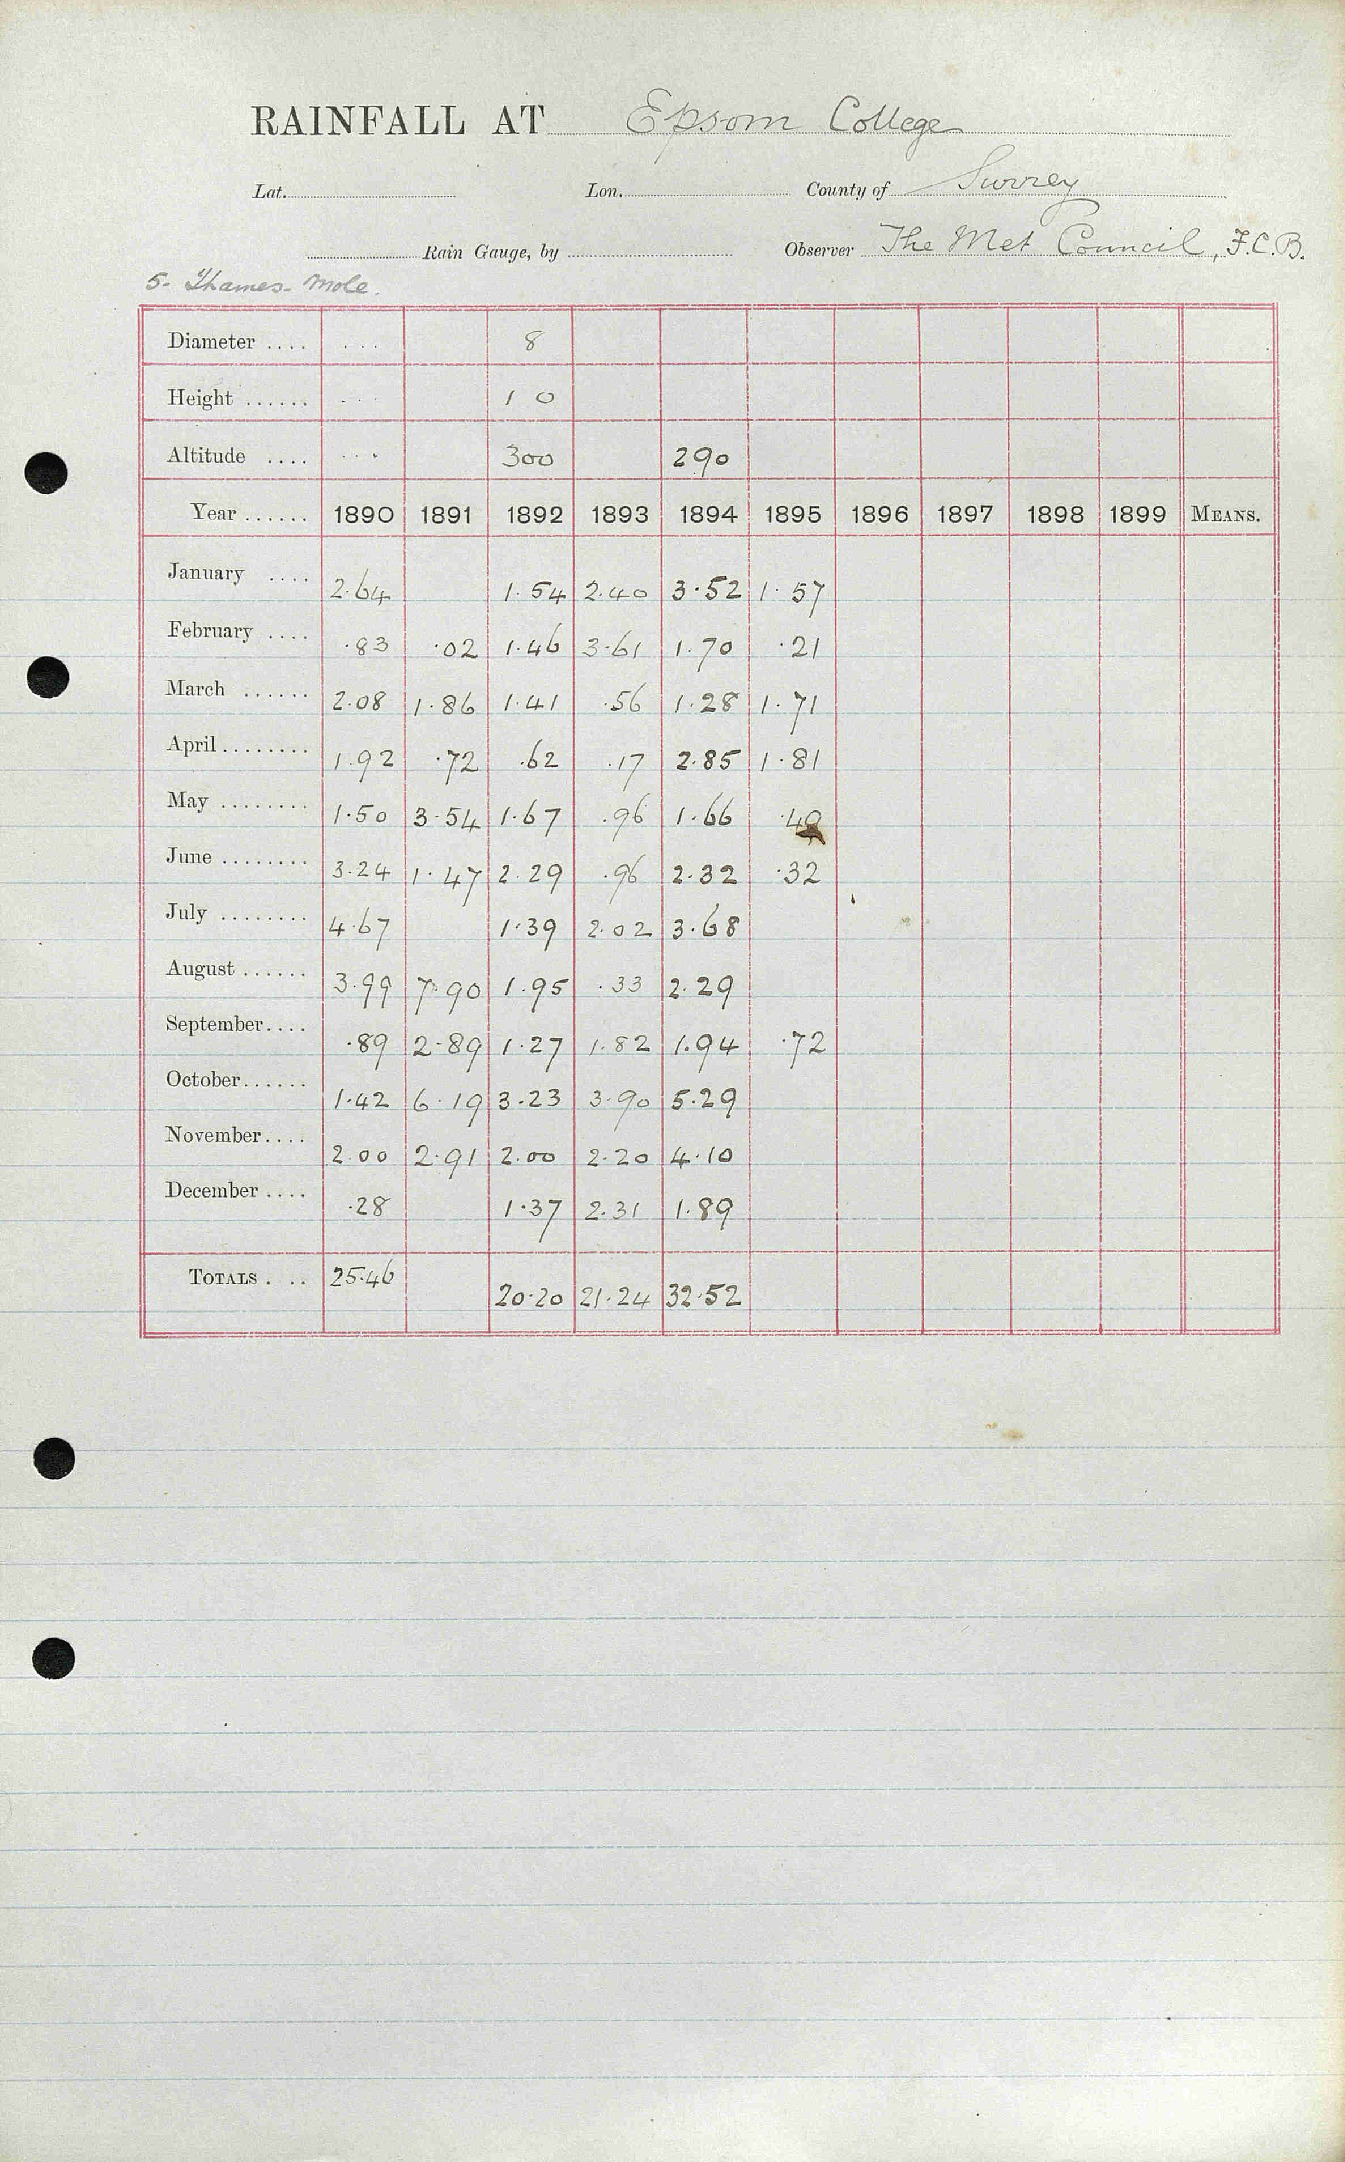 RAINFALL AT Epsom College
Lat. Lon. County of Surrey
Rain Gauge, by Observer The Met Council, F.C.B.
5. Thames-Mole.
Diameter .... ... 8
Height ...... ... 1 0
Altitude .... ... 300 290
Year ...... 1890 1891 1892 1893 1894 1895 1896 1897 1898 1899 MEANS.
January .... 2.64 1.54 2.40 3.52 1.57
February .... .83 .02 1.46 3.61 1.70 .21
March ...... 2.08 1.86 1.41 .56 1.28 1.71
April ........ 1.92 .72 .62 .17 2.85 1.81
May ........ 1.50 3.54 1.67 .96 1.66 .49
June ........ 3.24 1.47 2.29 .96 2.32 .32
July ........ 4.67 1.39 2.02 3.68
August ...... 3.99 7.90 1.95 .33 2.29
September.... .89 2.89 1.27 1.82 1.94 .72
October...... 1.42 6.19 3.23 3.90 5.29
November.... 2.00 2.91 2.00 2.20 4.10
December .... .28 1.37 2.31 1.89
TOTALS . .. 25.46 20.20 21.24 32.52